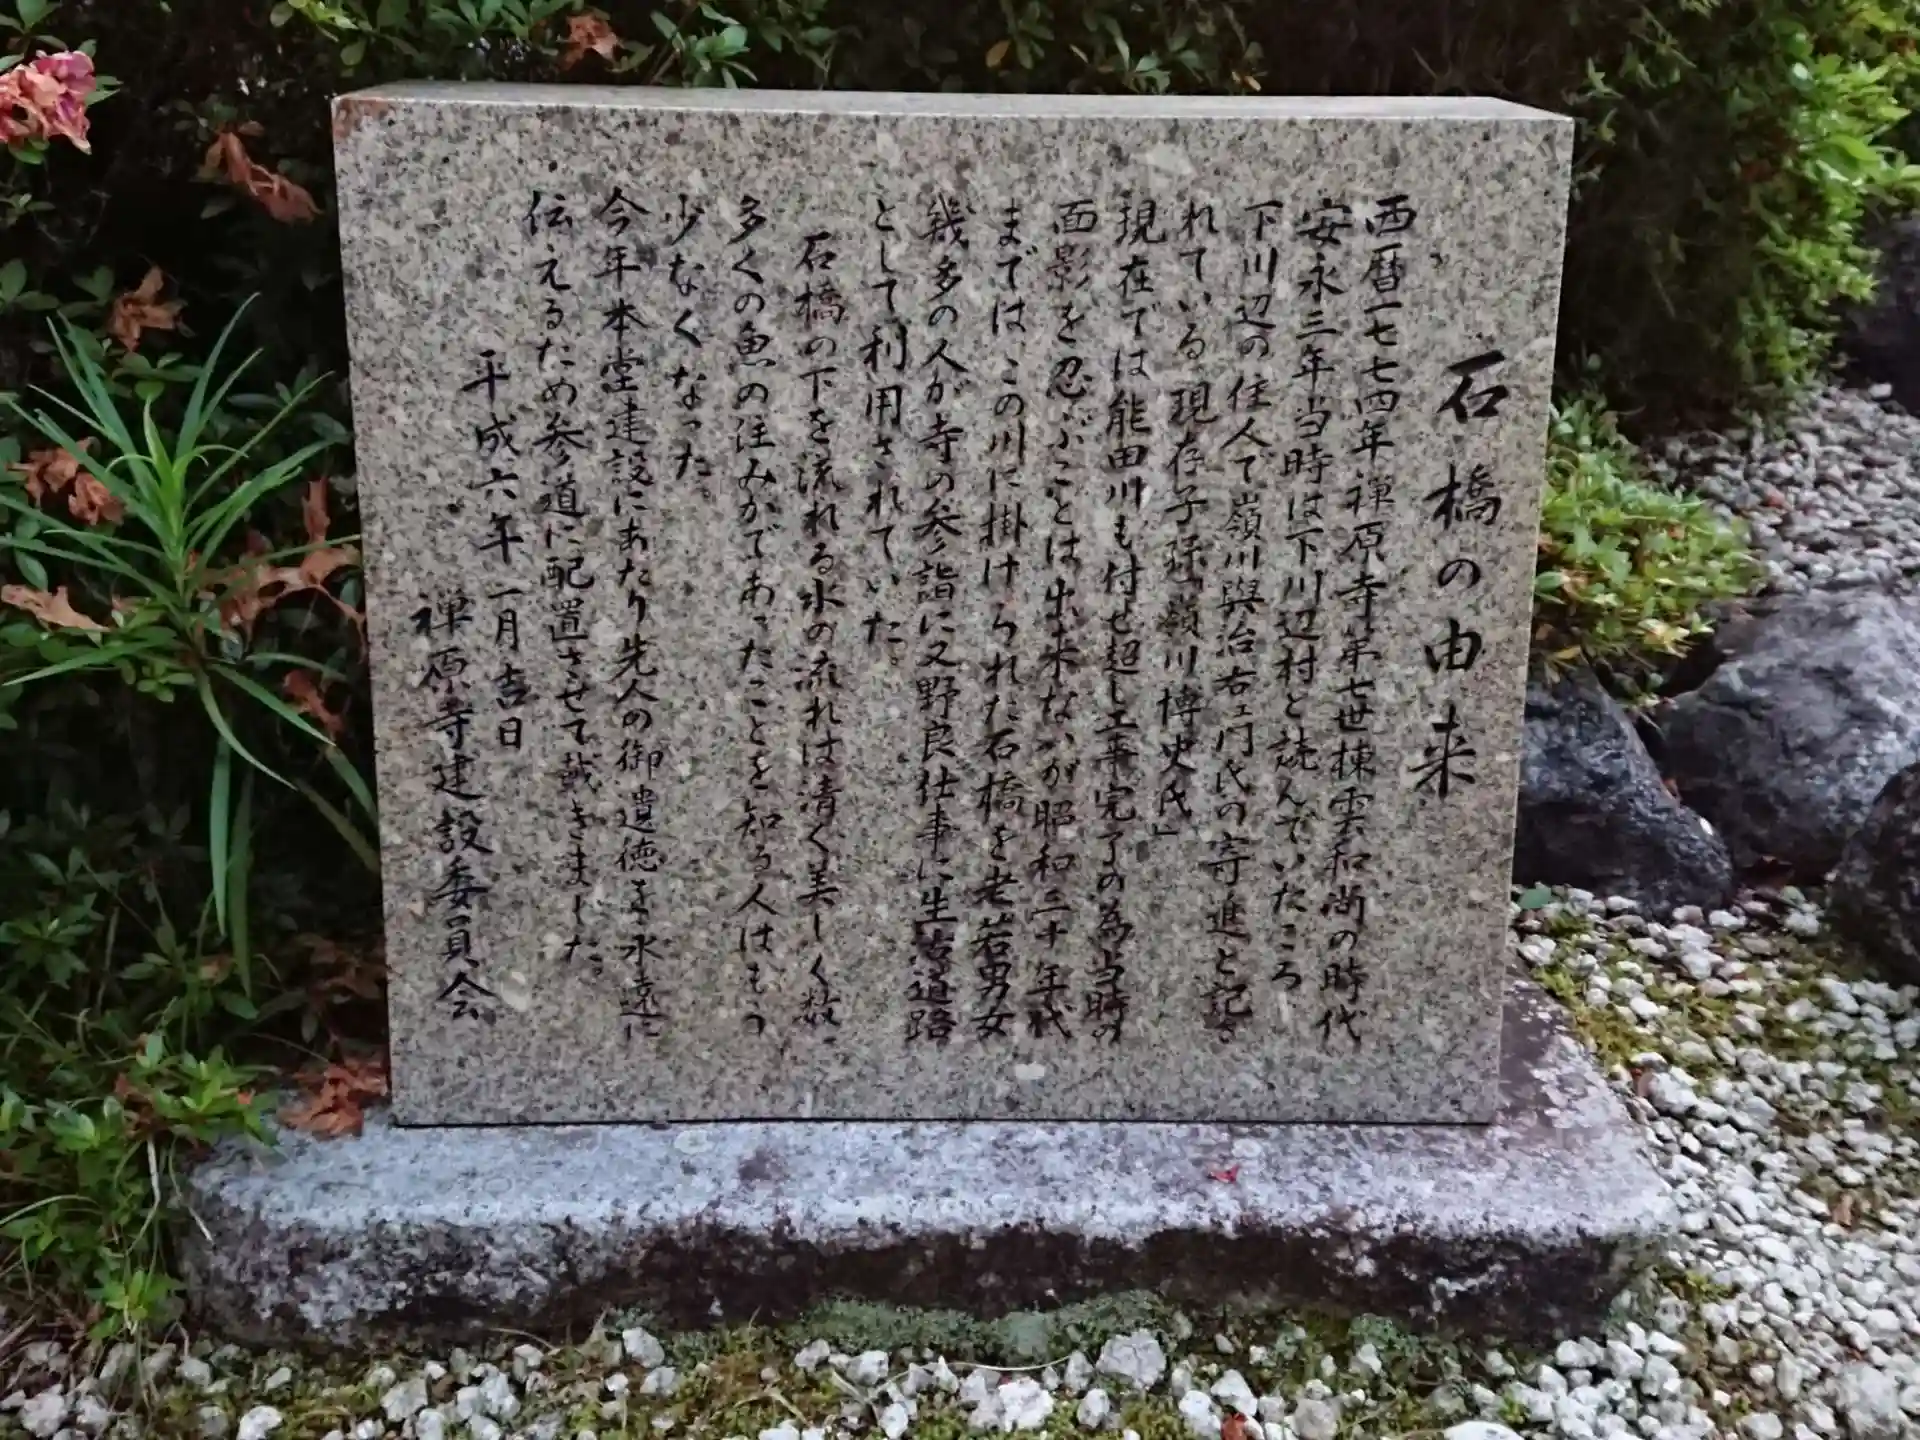 石橋の由来
西暦一七七四年禅原寺第七世棟雲和尚の時代
安永三年当時は下川辺村と読んでいたころ
下川辺の住人で嶺川與治右ェ門氏の寄進と記さ
れている「現存子孫嶺川博史氏」
現在では能田川も付せ超し工事完了の為当時の
面影を忍ぶことは出来ないが昭和三十年代
まではこの川に掛けられた石橋を老若男女
幾多の人が寺の参詣に又野良仕事に生活道路
として利用されていた。
石橋の下を流れる水の流れは清く美しく数
多くの魚の住みかであったことを知る人はもう
少なくなった。
今年本堂建設にあたり先人の御遺徳を永遠に
伝えるため参道に配置させて戴きました。
平成六年一月吉日
禅原寺建設委員会